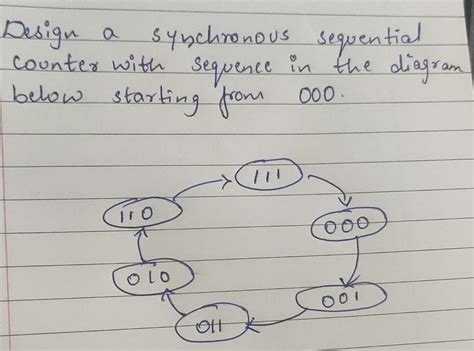 Design a synchronous sequential
counter with sequence in the diagram
below starting from 000.
111
110
000
010
001
011